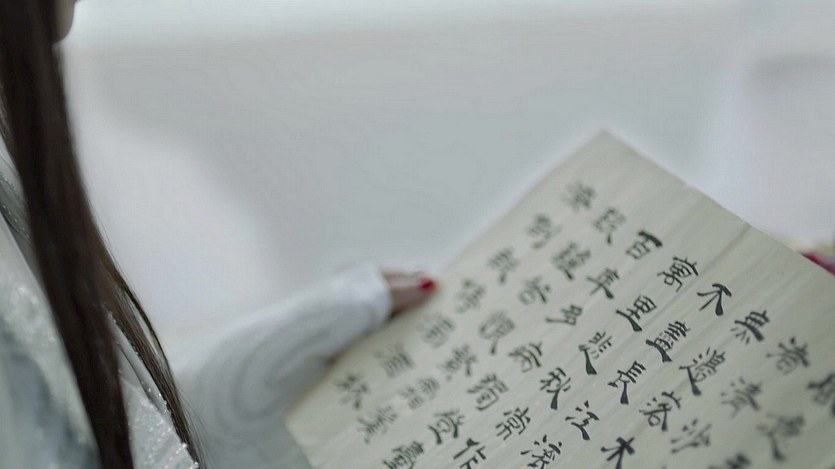 渚清沙
無邊落木
不盡長江滾
萬里悲秋常作
百年多病獨登臺
艱難苦恨繁霜鬢
潦倒新停濁酒杯